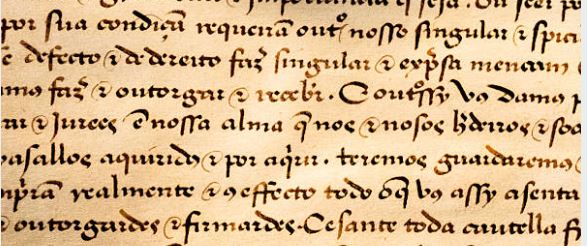 por sua condiçã requerirã outº nosso singular & spici
defecto & de dereito fazer singular & expsa mencam
mus fazer & outorgar & receber. E outº ssy vos damos p
rar & Jurees ẽ nossa alma q̃ nos & nosos hdeiros & soc
vasallos aquiridos & por aq̃rir. teremos guardaremos
nprirã realmente & cõ effecto todo o q̃ vos assy asenta
& outorgardes & firmardes. Cesante toda cautella fr